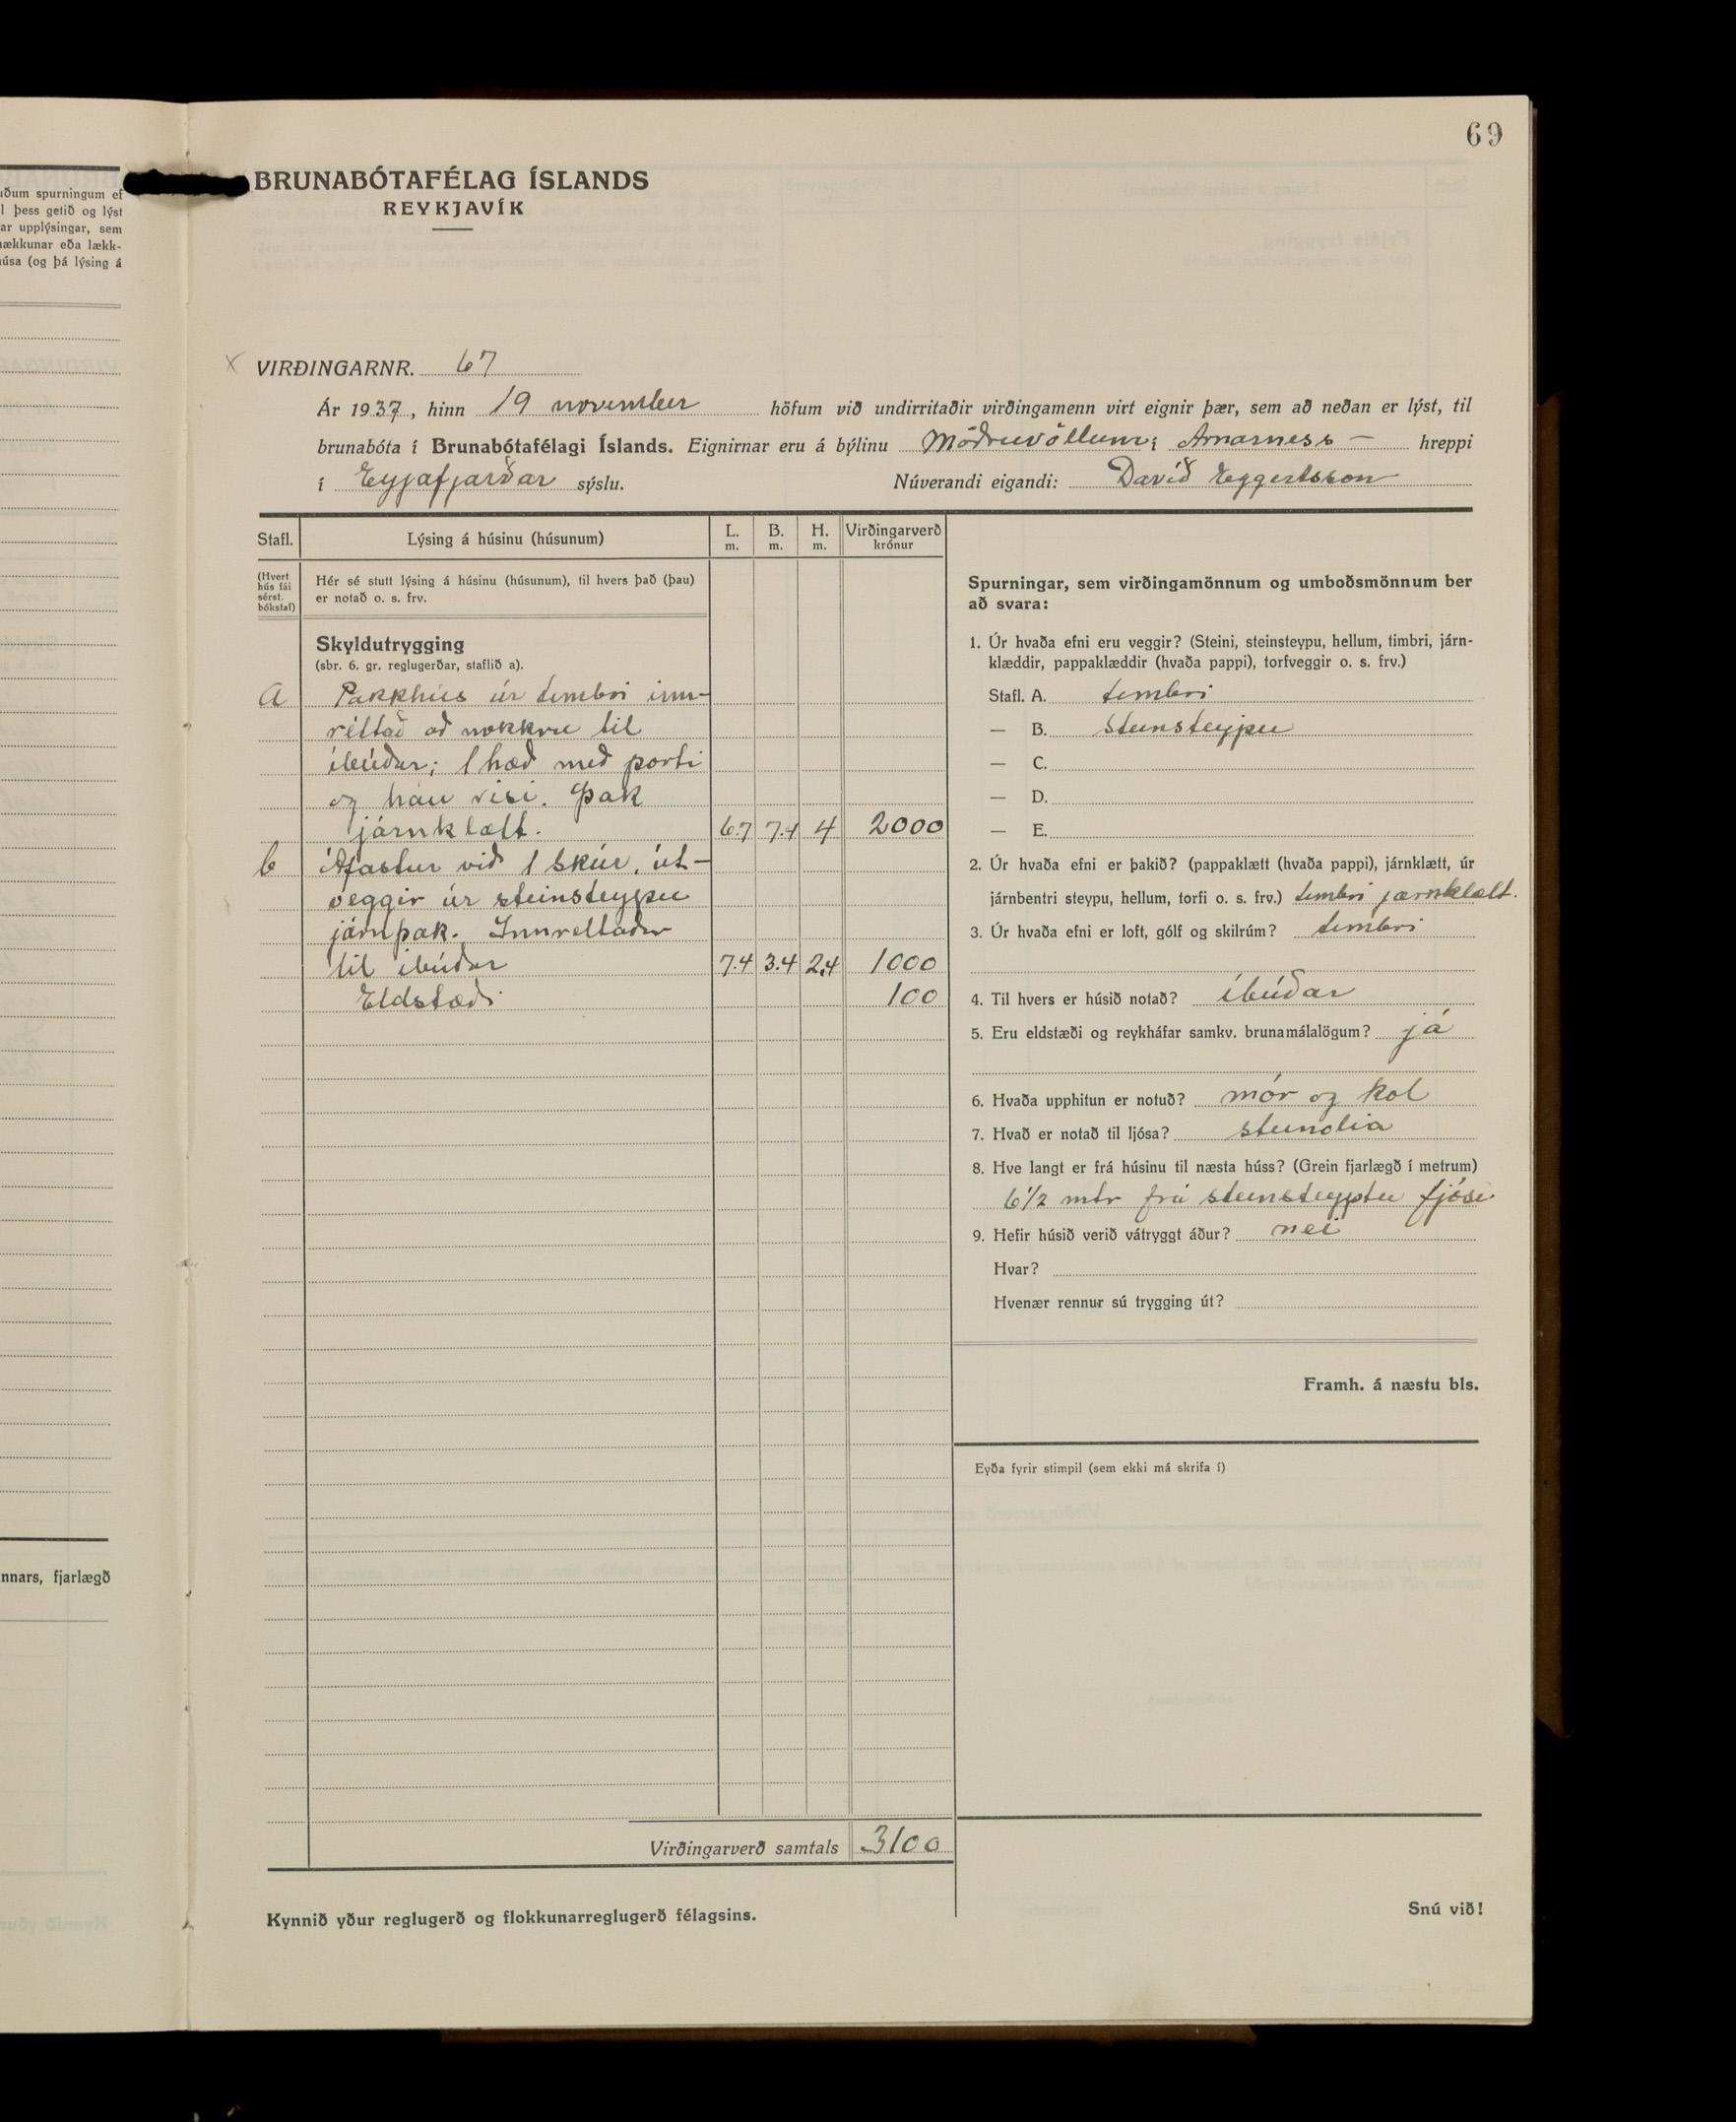 69
uðum spurningum ef
l þess getið og lýst
ar upplýsingar, sem
hækkunar eða lækk-
húsa (og þá lýsing á
nnars, fjarlægð
BRUNABÓTAFÉLAG ÍSLANDS
REYKJAVÍK
x VIRÐINGARNR. 67
Ár 1937, hinn 19 november höfum við undirritaðir virðingamenn virt eignir þær, sem að neðan er lýst, til
brunabóta í Brunabótafélagi Íslands. Eignirnar eru á býlinu Möðruvöllum í Arnarness – hreppi
í Eyjafjarðar sýslu. Núverandi eigandi: Davíð Eggertsson
Stafl. Lýsing á húsinu (húsunum) L. m. B. m. H. m. Virðingarverð krónur
(Hvert hús fái sérst. bókstaf)
Hér sé stutt lýsing á húsinu (húsunum), til hvers það (þau)
er notað o. s. frv.
Skyldutrygging
(sbr. 6. gr. reglugerðar, staflið a).
a Pakkhús úr timbri inn-
réttað að nokkru til
íbúðar; 1 hæð með porti
og háu risi. Þak
járnklætt. 6.7 7.4 4 2000
b Áfastur við 1 skúr, út-
veggir úr steinsteypu
járnþak. Innrettaður
til íbúðar 7.4 3.4 2.4 1000
Eldstæði 100
Virðingarverð samtals 3100
Kynnið yður reglugerð og flokkunarreglugerð félagsins.
Spurningar, sem virðingamönnum og umboðsmönnum ber
að svara:
1. Úr hvaða efni eru veggir? (Steini, steinsteypu, hellum, timbri, járn-
klæddir, pappaklæddir (hvaða pappi), torfveggir o. s. frv.)
Stafl. A. timbri
— B. steinsteypu
— C.
— D.
— E.
2. Úr hvaða efni er þakið? (pappaklætt (hvaða pappi), járnklætt, úr
járnbentri steypu, hellum, torfi o. s. frv.) timbri járnklætt.
3. Úr hvaða efni er loft, gólf og skilrúm? timbri
4. Til hvers er húsið notað? íbúðar
5. Eru eldstæði og reykháfar samkv. brunamálalögum? já
6. Hvaða upphitun er notuð? mór og kol
7. Hvað er notað til ljósa? steinolia
8. Hve langt er frá húsinu til næsta húss? (Grein fjarlægð í metrum)
6 1/2 mtr frá steinsteyptu fjósi
9. Hefir húsið verið vátryggt áður? nei
Hvar?
Hvenær rennur sú trygging út?
Framh. á næstu bls.
Eyða fyrir stimpil (sem ekki má skrifa í)
Snú við!